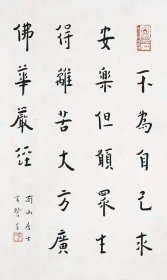 不為自己求
安樂但願眾生
得離苦大方廣
佛華嚴經